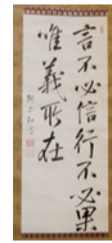 言不必信行不必果
唯義所在